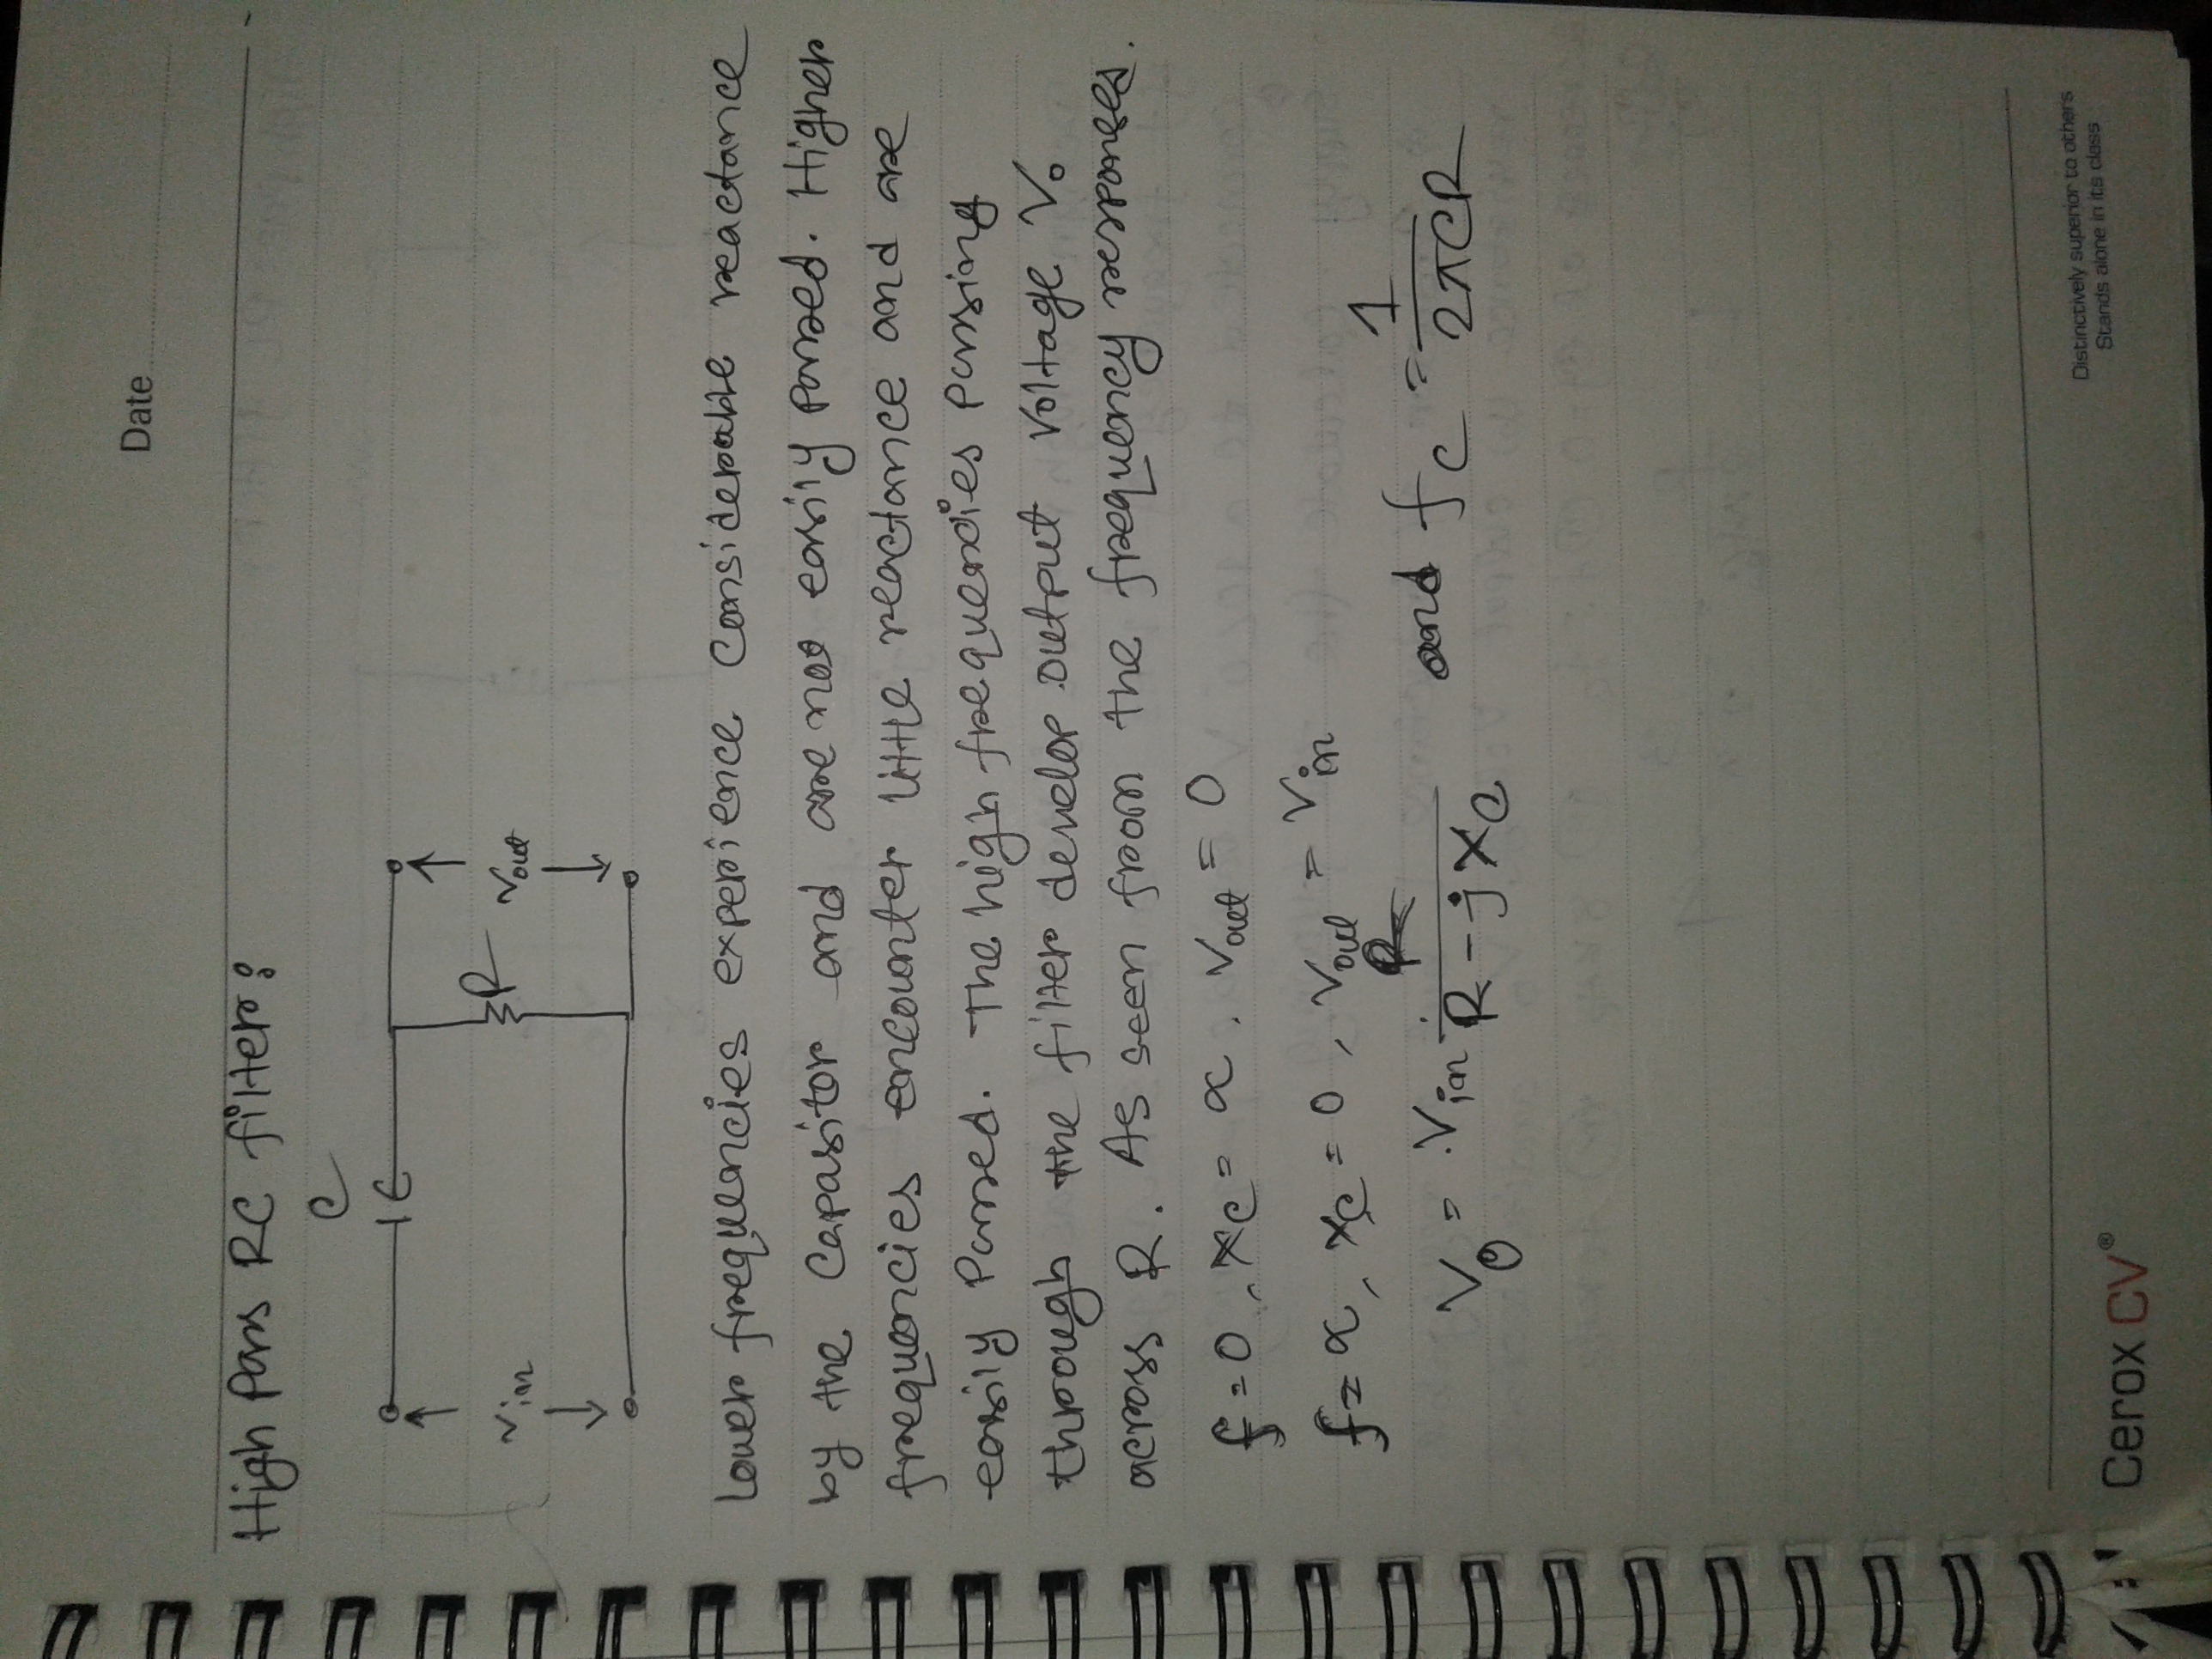 Date
High Pass RC filter:
C
Vin
R
Vout
Lower frequencies experience considerable reactance
by the Capasitor and are not easily passed. Higher
frequencies encounter little reactance and are
easily Passed. The high frequencies passing
through the filter develop output voltage V₀
across R. As seen from the frequency responses.
f = 0, Xc = α, Vout = 0
f = α, Xc = 0, Vout = Vin
V₀ = Vin R / (R - jXc) and fc = 1 / (2πCR)
Distinctively superior to others
Stands alone in its class
Cerox CV®